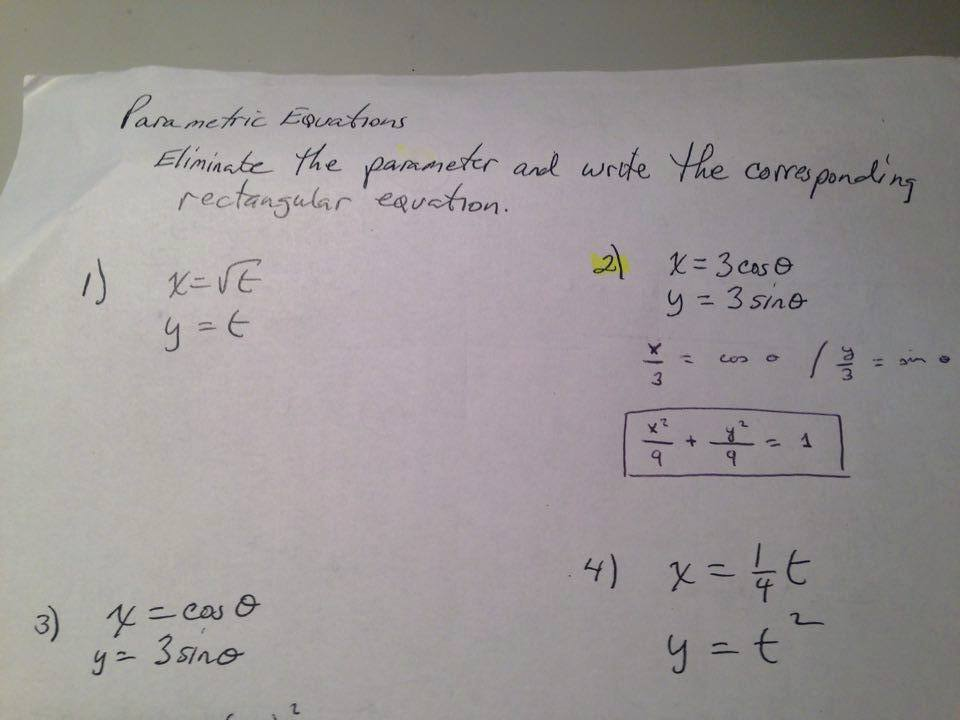 Parametric Equations
Eliminate the parameter and write the corresponding
rectangular equation.
1) x = √t
y = t
2) x = 3 cos θ
y = 3 sin θ
x/3 = cos θ / y/3 = sin θ
x²/9 + y²/9 = 1
3) x = cos θ
y = 3 sin θ
4) x = 1/4 t
y = t²
2